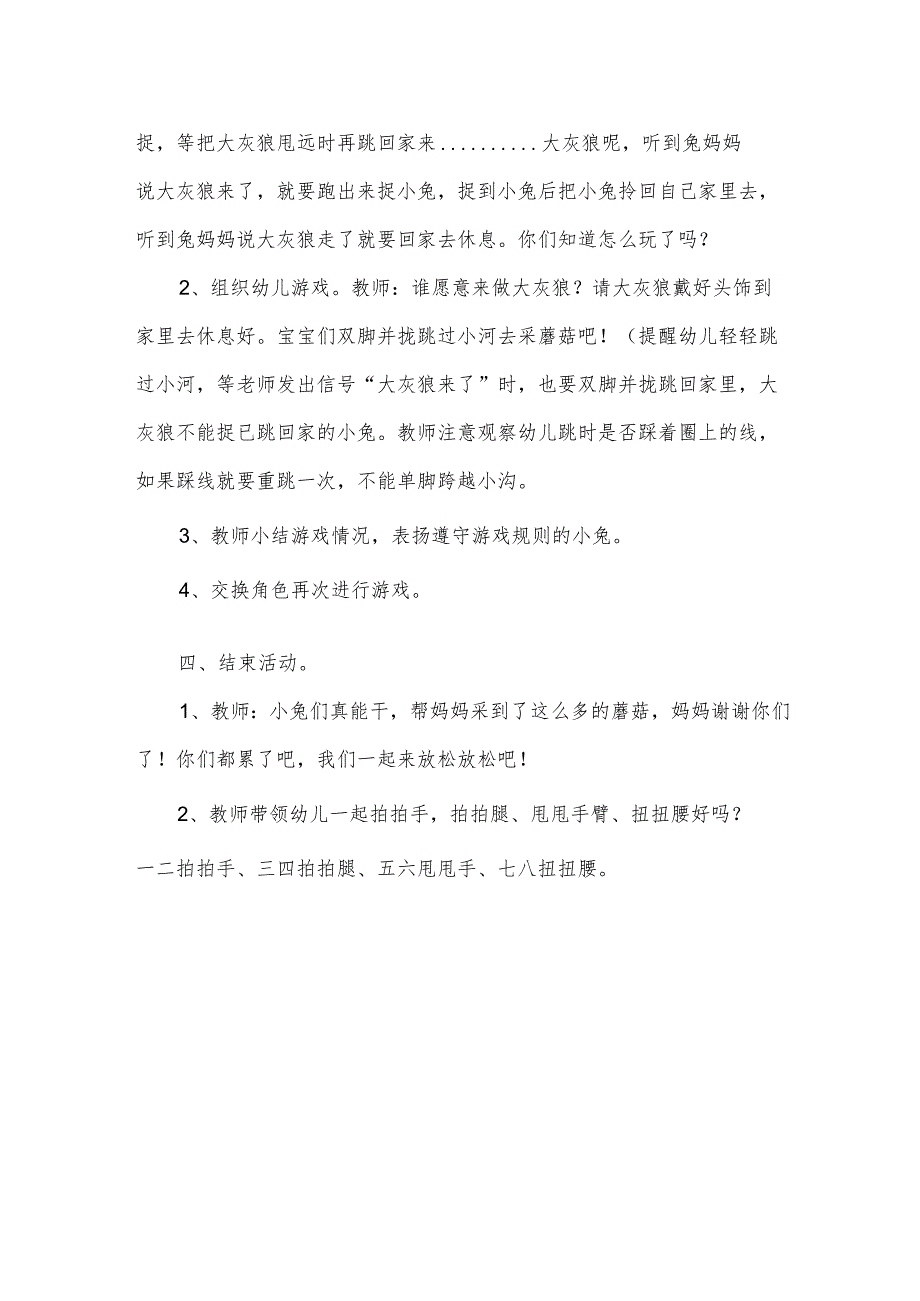 捉，等把大灰狼甩远时再跳回家来..........大灰狼呢，听到兔妈妈
说大灰狼来了，就要跑出来捉小兔，捉到小兔后把小兔拎回自己家里去，
听到兔妈妈说大灰狼走了就要回家去休息。你们知道怎么玩了吗？
2、组织幼儿游戏。教师：谁愿意来做大灰狼？请大灰狼戴好头饰到
家里去休息好。宝宝们双脚并找跳过小河去采蘑菇吧！（提醒幼儿轻轻跳
过小河，等老师发出信号“大灰狼来了”时，也要双脚并拢跳回家里，大
灰狼不能捉已跳回家的小兔。教师注意观察幼儿跳时是否踩着圈上的线，
如果踩线就要重跳一次，不能单脚跨越小沟。
3、教师小结游戏情况，表扬遵守游戏规则的小兔。
4、交换角色再次进行游戏。
四、结束活动。
1、教师：小兔们真能干，帮妈妈采到了这么多的蘑菇，妈妈谢谢你们
了！你们都累了吧，我们一起来放松放松吧！
2、教师带领幼儿一起拍拍手，拍拍腿、甩甩手臂、扭扭腰好吗？
一二拍拍手、三四拍拍腿、五六甩甩手、七八扭扭腰。